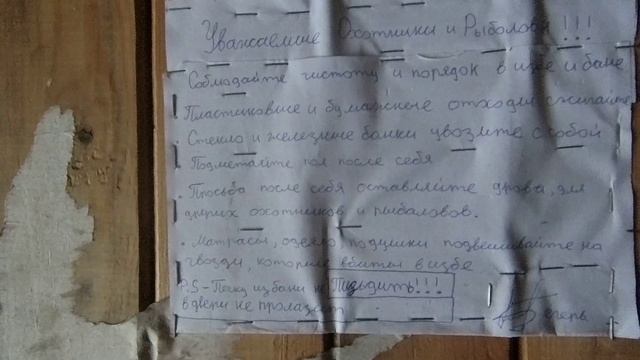 Уважаемые Охотники и Рыболовы !!!
Соблюдайте чистоту и порядок в избе и бане
Пластиковые и бумажные отходы сжигайте
. Стекло и железные банки увозите с собой
. Подметайте пол после себя
. Просьба после себя оставляйте дрова, для
других охотников и рыболовов.
. Матрасы, одеяло, подушки подвешивайте на
гвозди, которые вбиты в избе
P.S - Печку из бани не Пиздить!!!
в двери не пролазит
Егерь